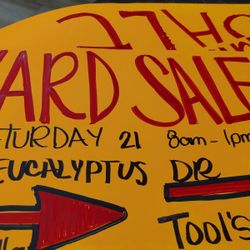 YARD SALE
SATURDAY 21 8am-1pm
EUCALYPTUS DR
TOOL'S